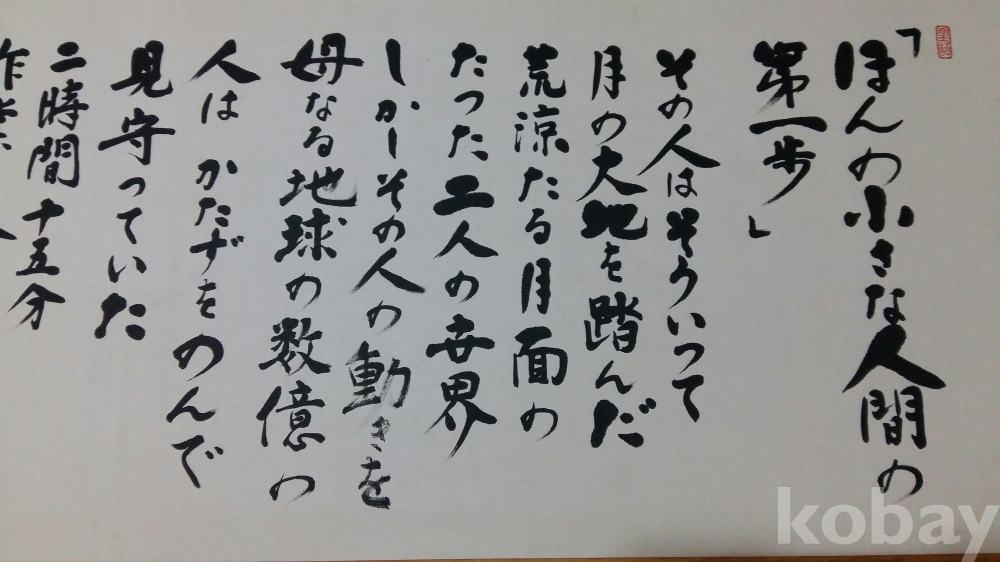 「ほんの小さな人間の
第一歩」
その人はそういって
月の大地を踏んだ
荒涼たる月面の
たった二人の世界
しかしその人の動きを
母なる地球の数億の
人は かたずをのんで
見守っていた
二時間十五分
kobay